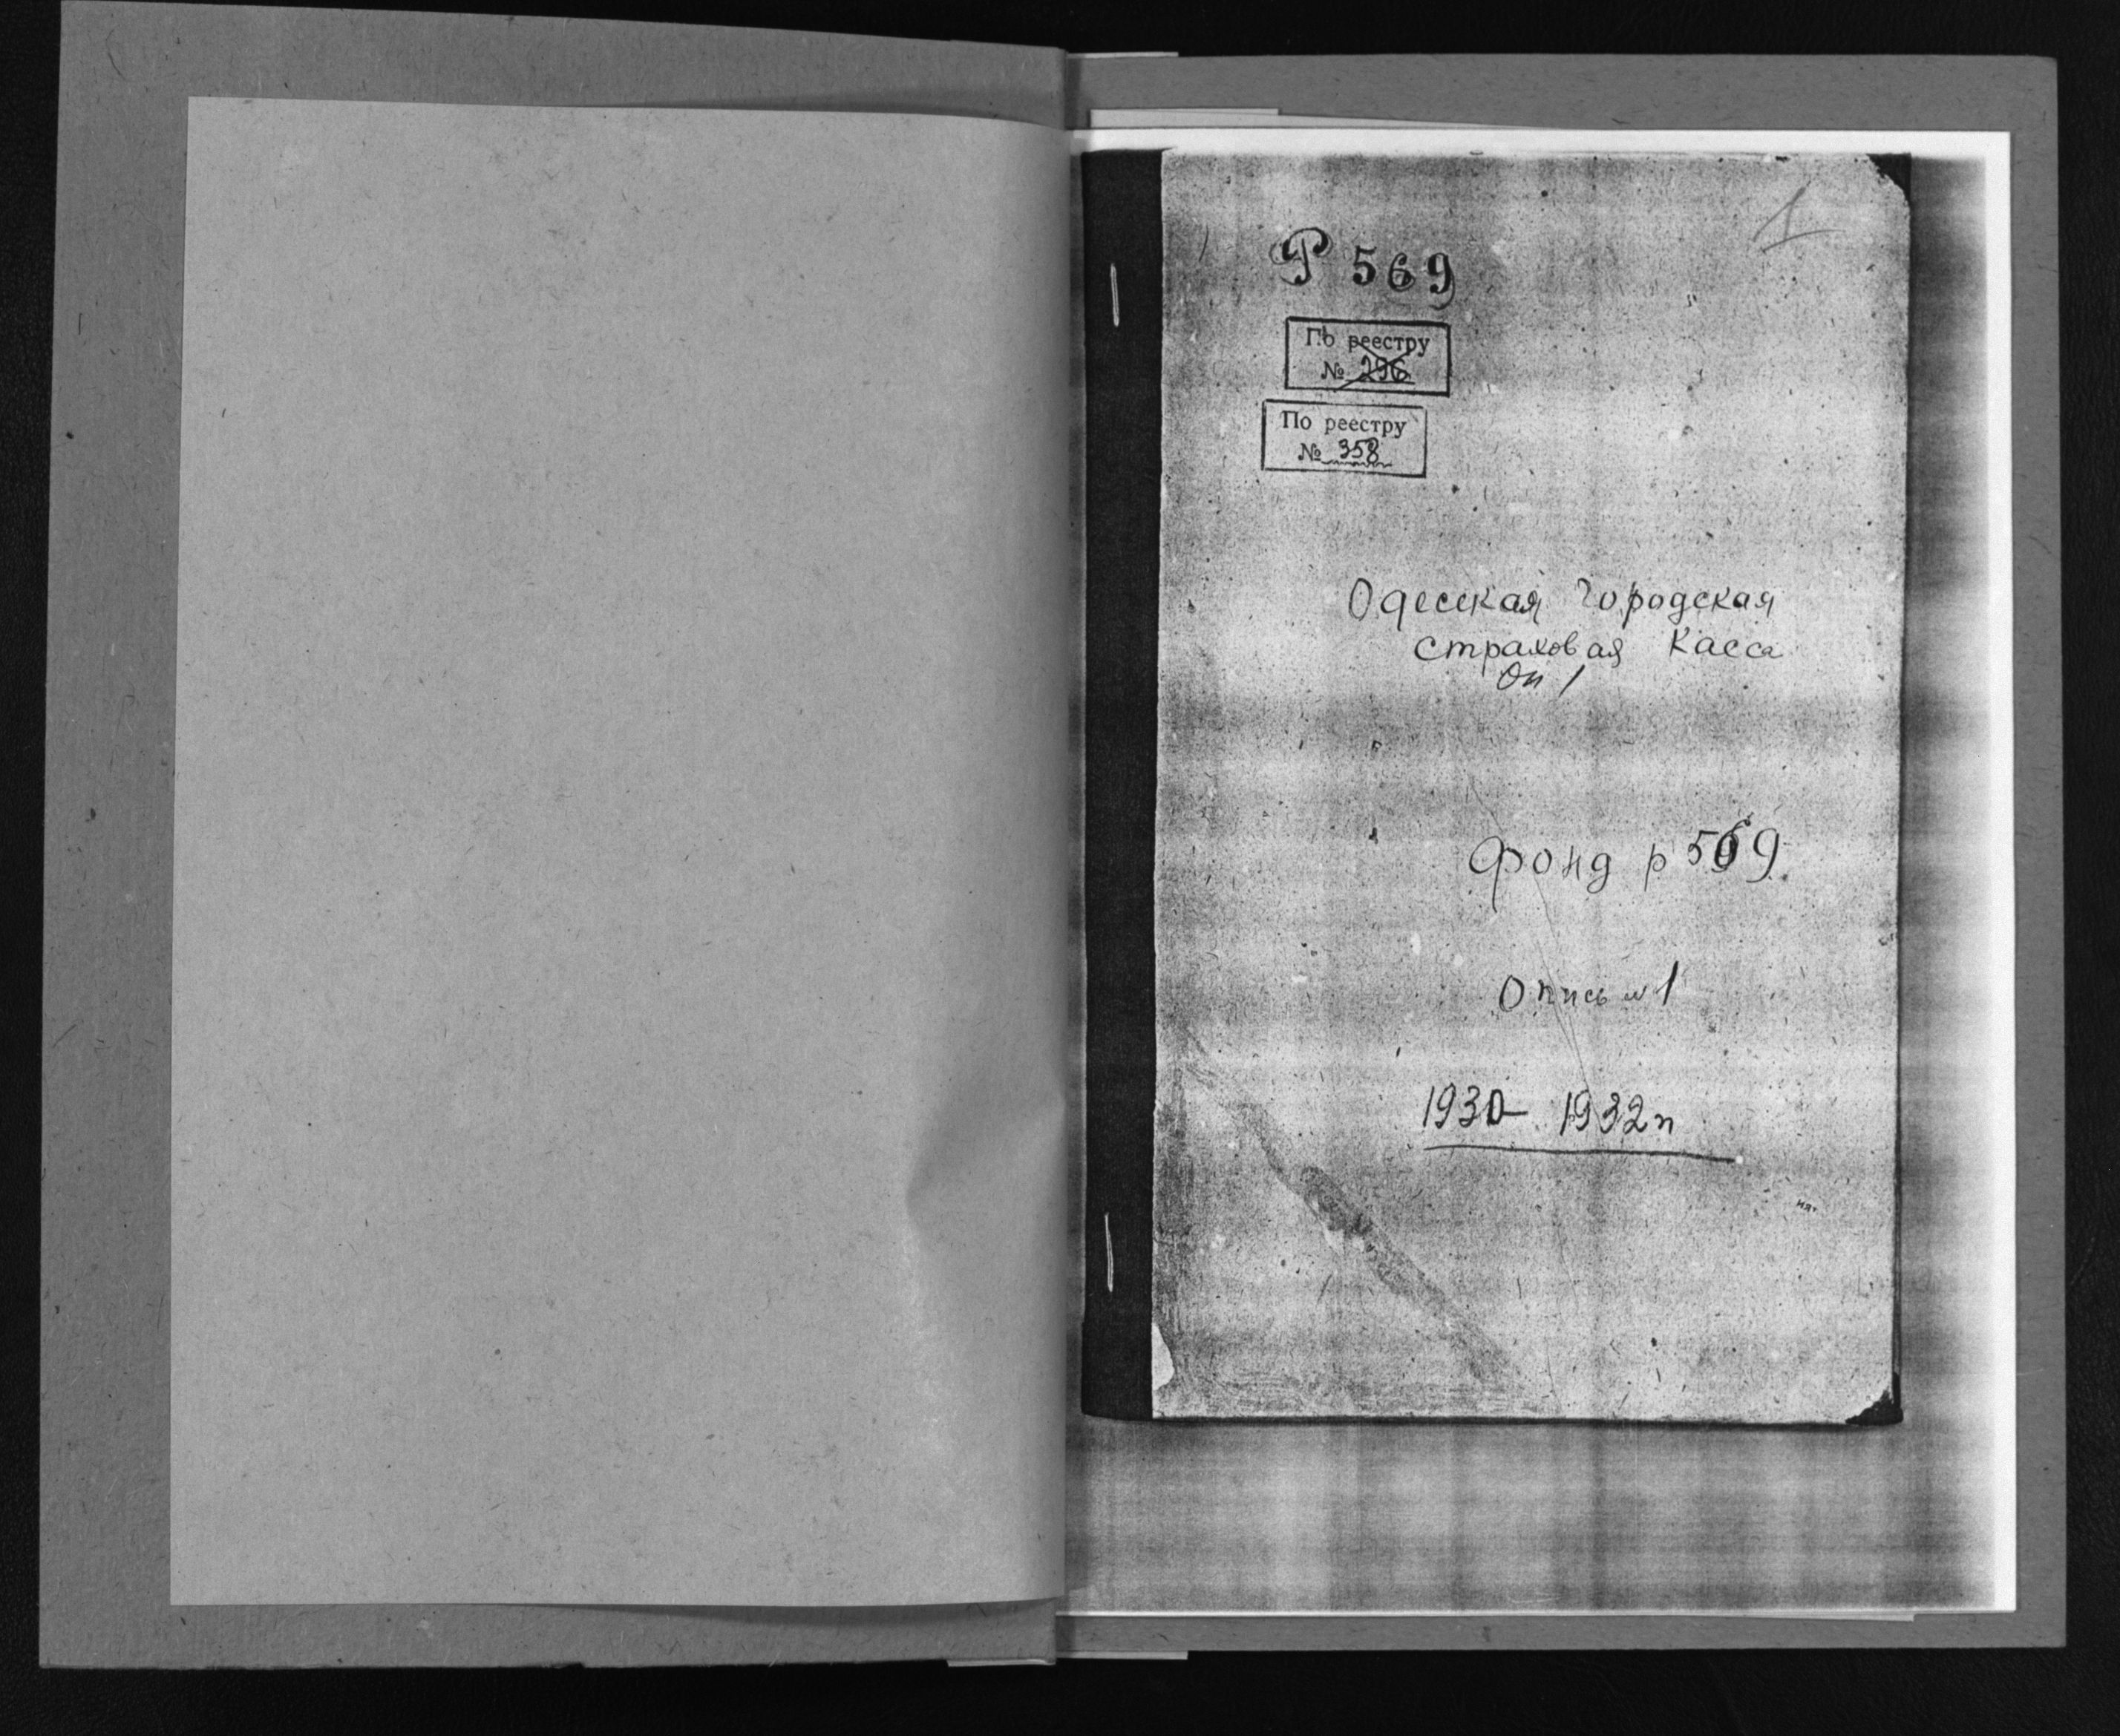 1
Р 569
По реестру
№ 296
По реестру
№ 358
Одесская городская
страховая касса
Оп 1
Фонд р 569
Опись № 1
1930 - 1932 гг